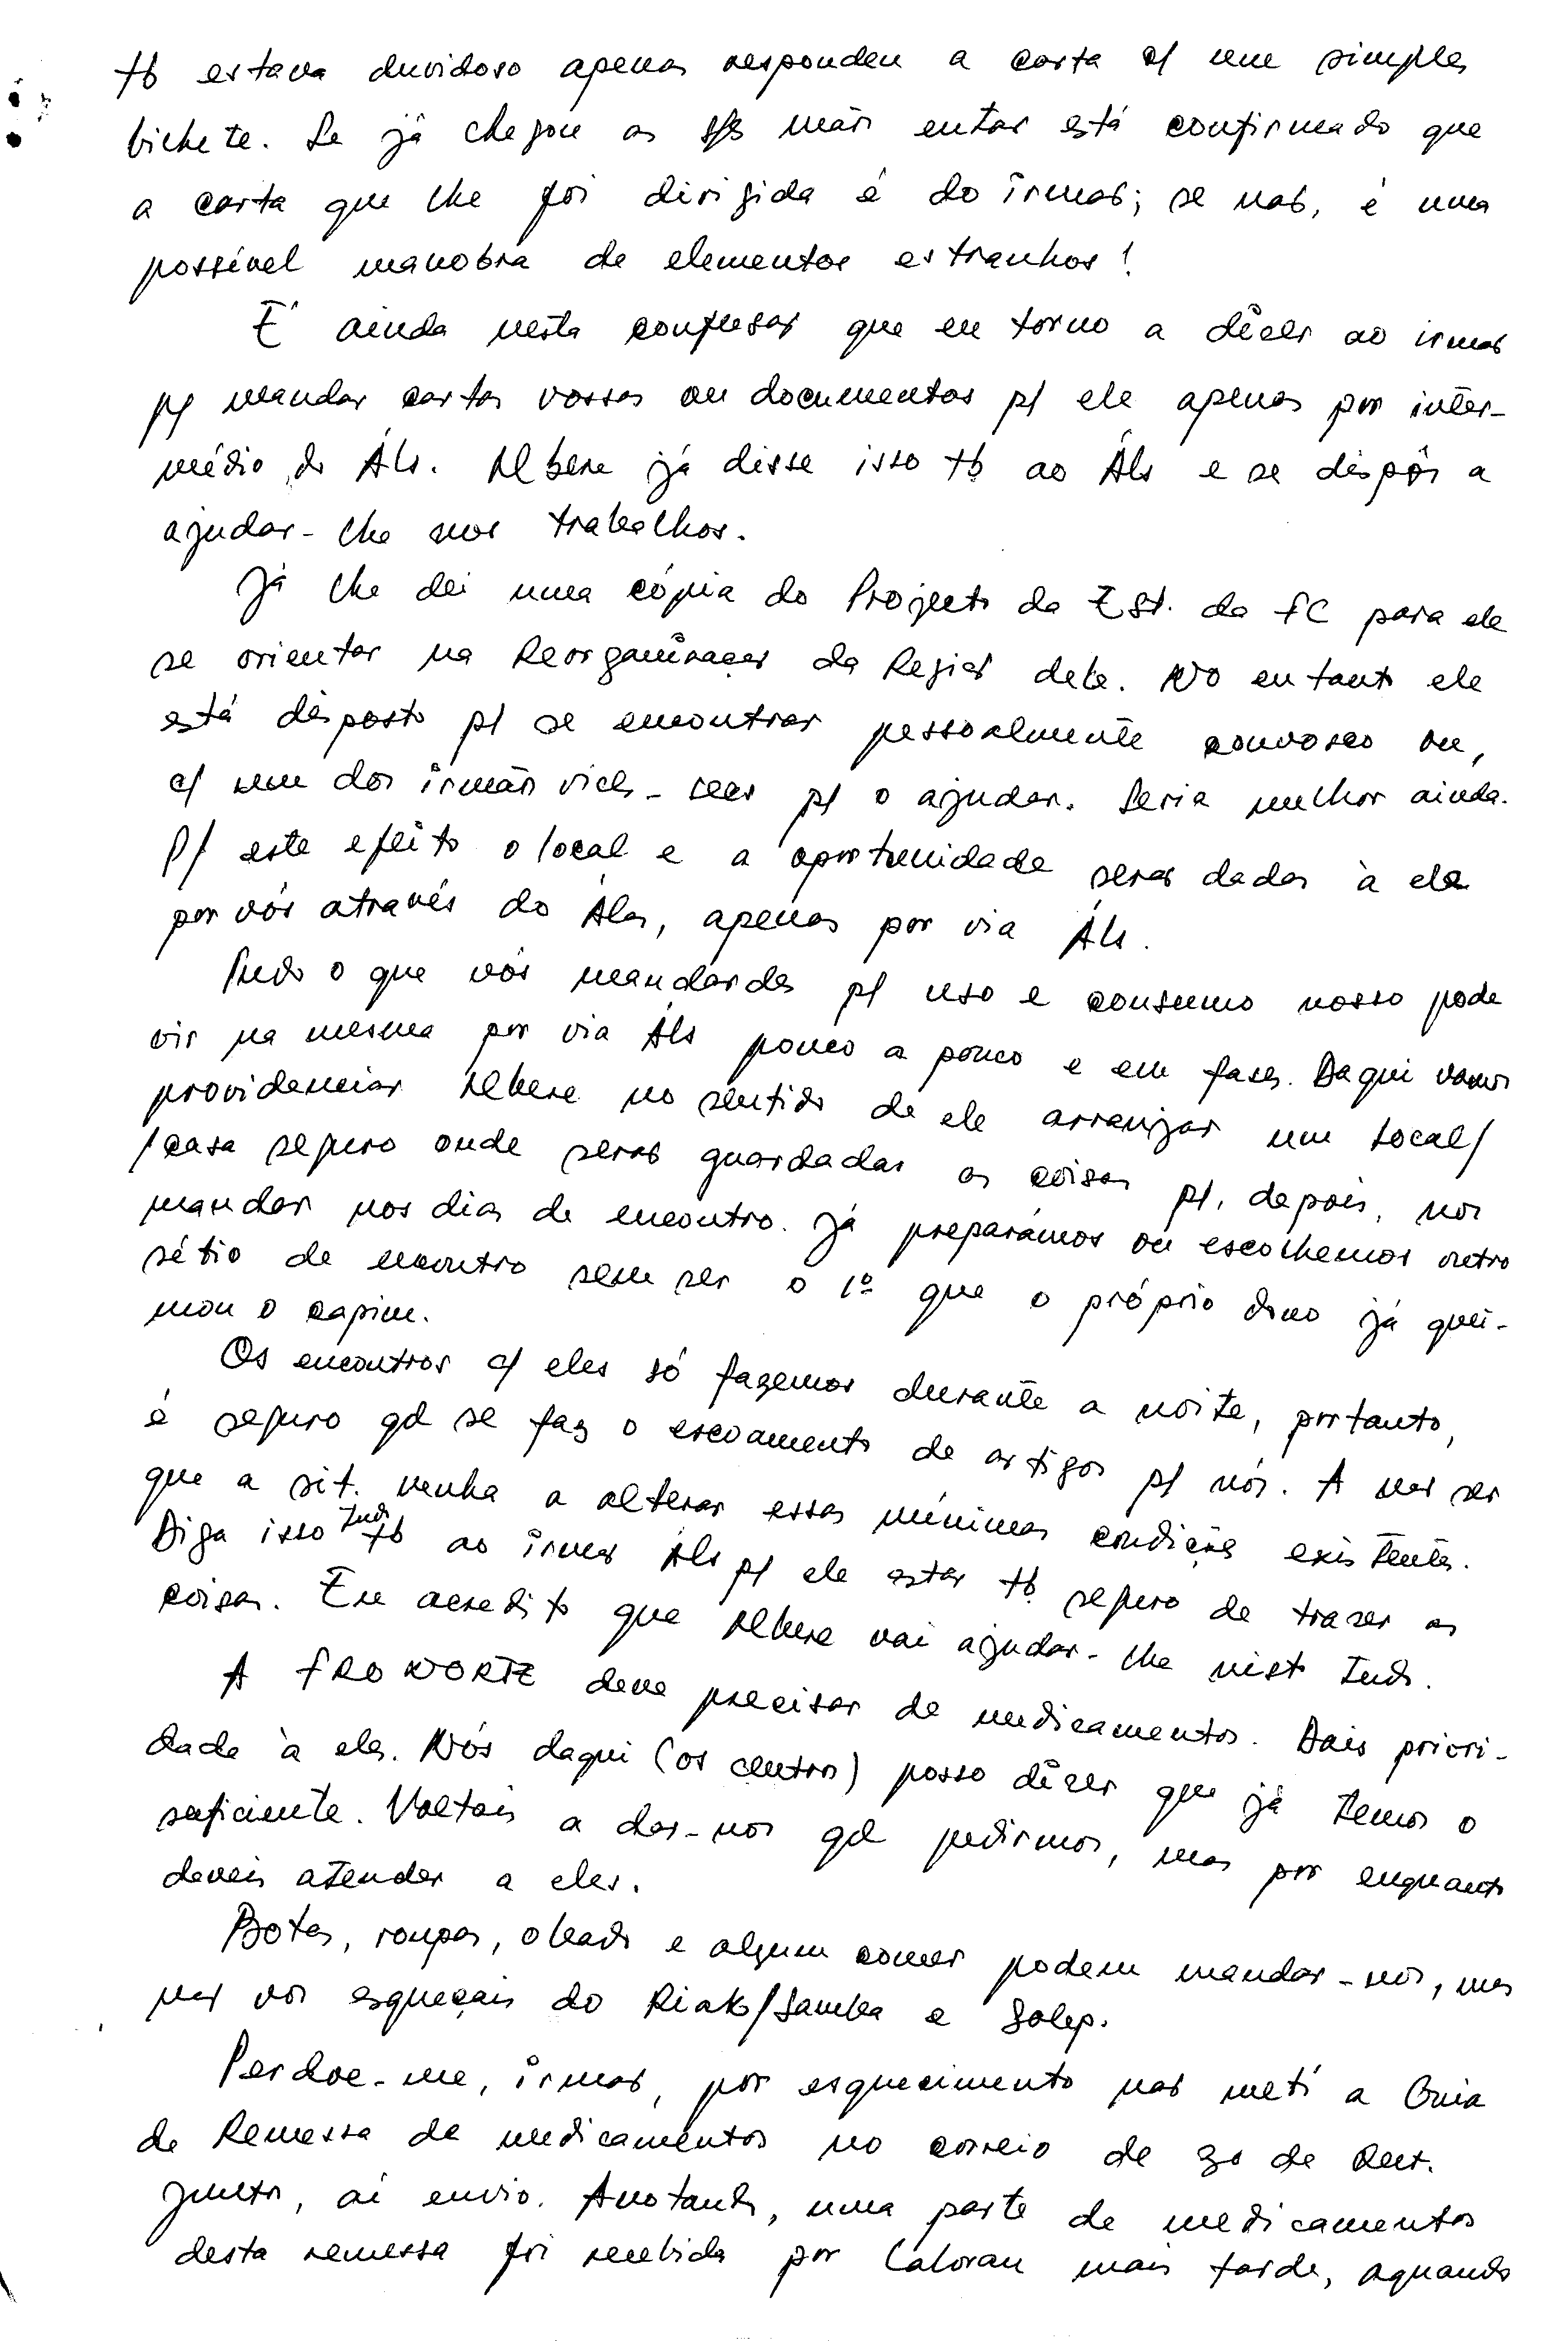 tb estava duvidoso apenas respondeu a carta c/ um simples
bilhete. Se já chegou as s/s mãos entao está confirmado que
a carta que lhe foi dirigida é do irmao; se nao, é uma
possível manobra de elementos estranhos!
É ainda nesta confusao que eu torno a dizer ao irmao
p/ mandar cartas vossas ou documentos p/ ele apenas por inter-
médio do Áls. Albere já disse isso tb ao Áls e se dispôs a
ajudar-lhe nos trabalhos.
Já lhe dei uma cópia do Projecto da Est. da FC para ele
se orientar na Reorganizaçao da Regiao dele. No entanto ele
está disposto p/ se encontrar pessoalmente convosco ou,
c/ um dos irmãos vices-secs p/ o ajudar. Seria melhor ainda.
P/ este efeito o local e a oportunidade serao dados à ele
por vós através do Áls, apenas por via Áls.
Tudo o que vós mandardes p/ uso e consumo nosso pode
vir na mesma por via Áls pouco a pouco e em fases. Daqui vamos
providenciar Albere no sentido de ele arranjar um local/
/casa seguro onde serao guardadas as coisas p/, depois, nos
mandar nos dias de encontro. Já preparámos ou escolhemos outro
sítio de encontro sem ser o 1º que o próprio dono já quei-
mou o capim.
Os encontros c/ eles só fazemos durante a noite, portanto,
é seguro qd se faz o escoamento de artigos p/ nós. A nao ser
que a sit. venha a alterar essas mínimas condições existentes.
Diga isso tudo tb ao irmao Áls p/ ele estar tb seguro de trazer as
coisas. Eu acredito que Albere vai ajudar-lhe nisto tudo.
A FRONORTE deve precisar de medicamentos. Dais priori-
dade à eles. Nós daqui (os centros) posso dizer que já temos o
suficiente. Voltais a dar-nos qd pedirmos, mas por enquanto
deveis atender a eles.
Botas, roupas, oleado e algum comer podem mandar-nos, mas
nao vos esqueçais do Riak/Samba e Solep.
Perdoe-me, irmao, por esquecimento nao meti a Guia
de Remessa de medicamentos no correio de 30 de Out.
Junto, aí envio. Anotando, uma parte de medicamentos
desta remessa foi recebida por Laloran mais tarde, aquando